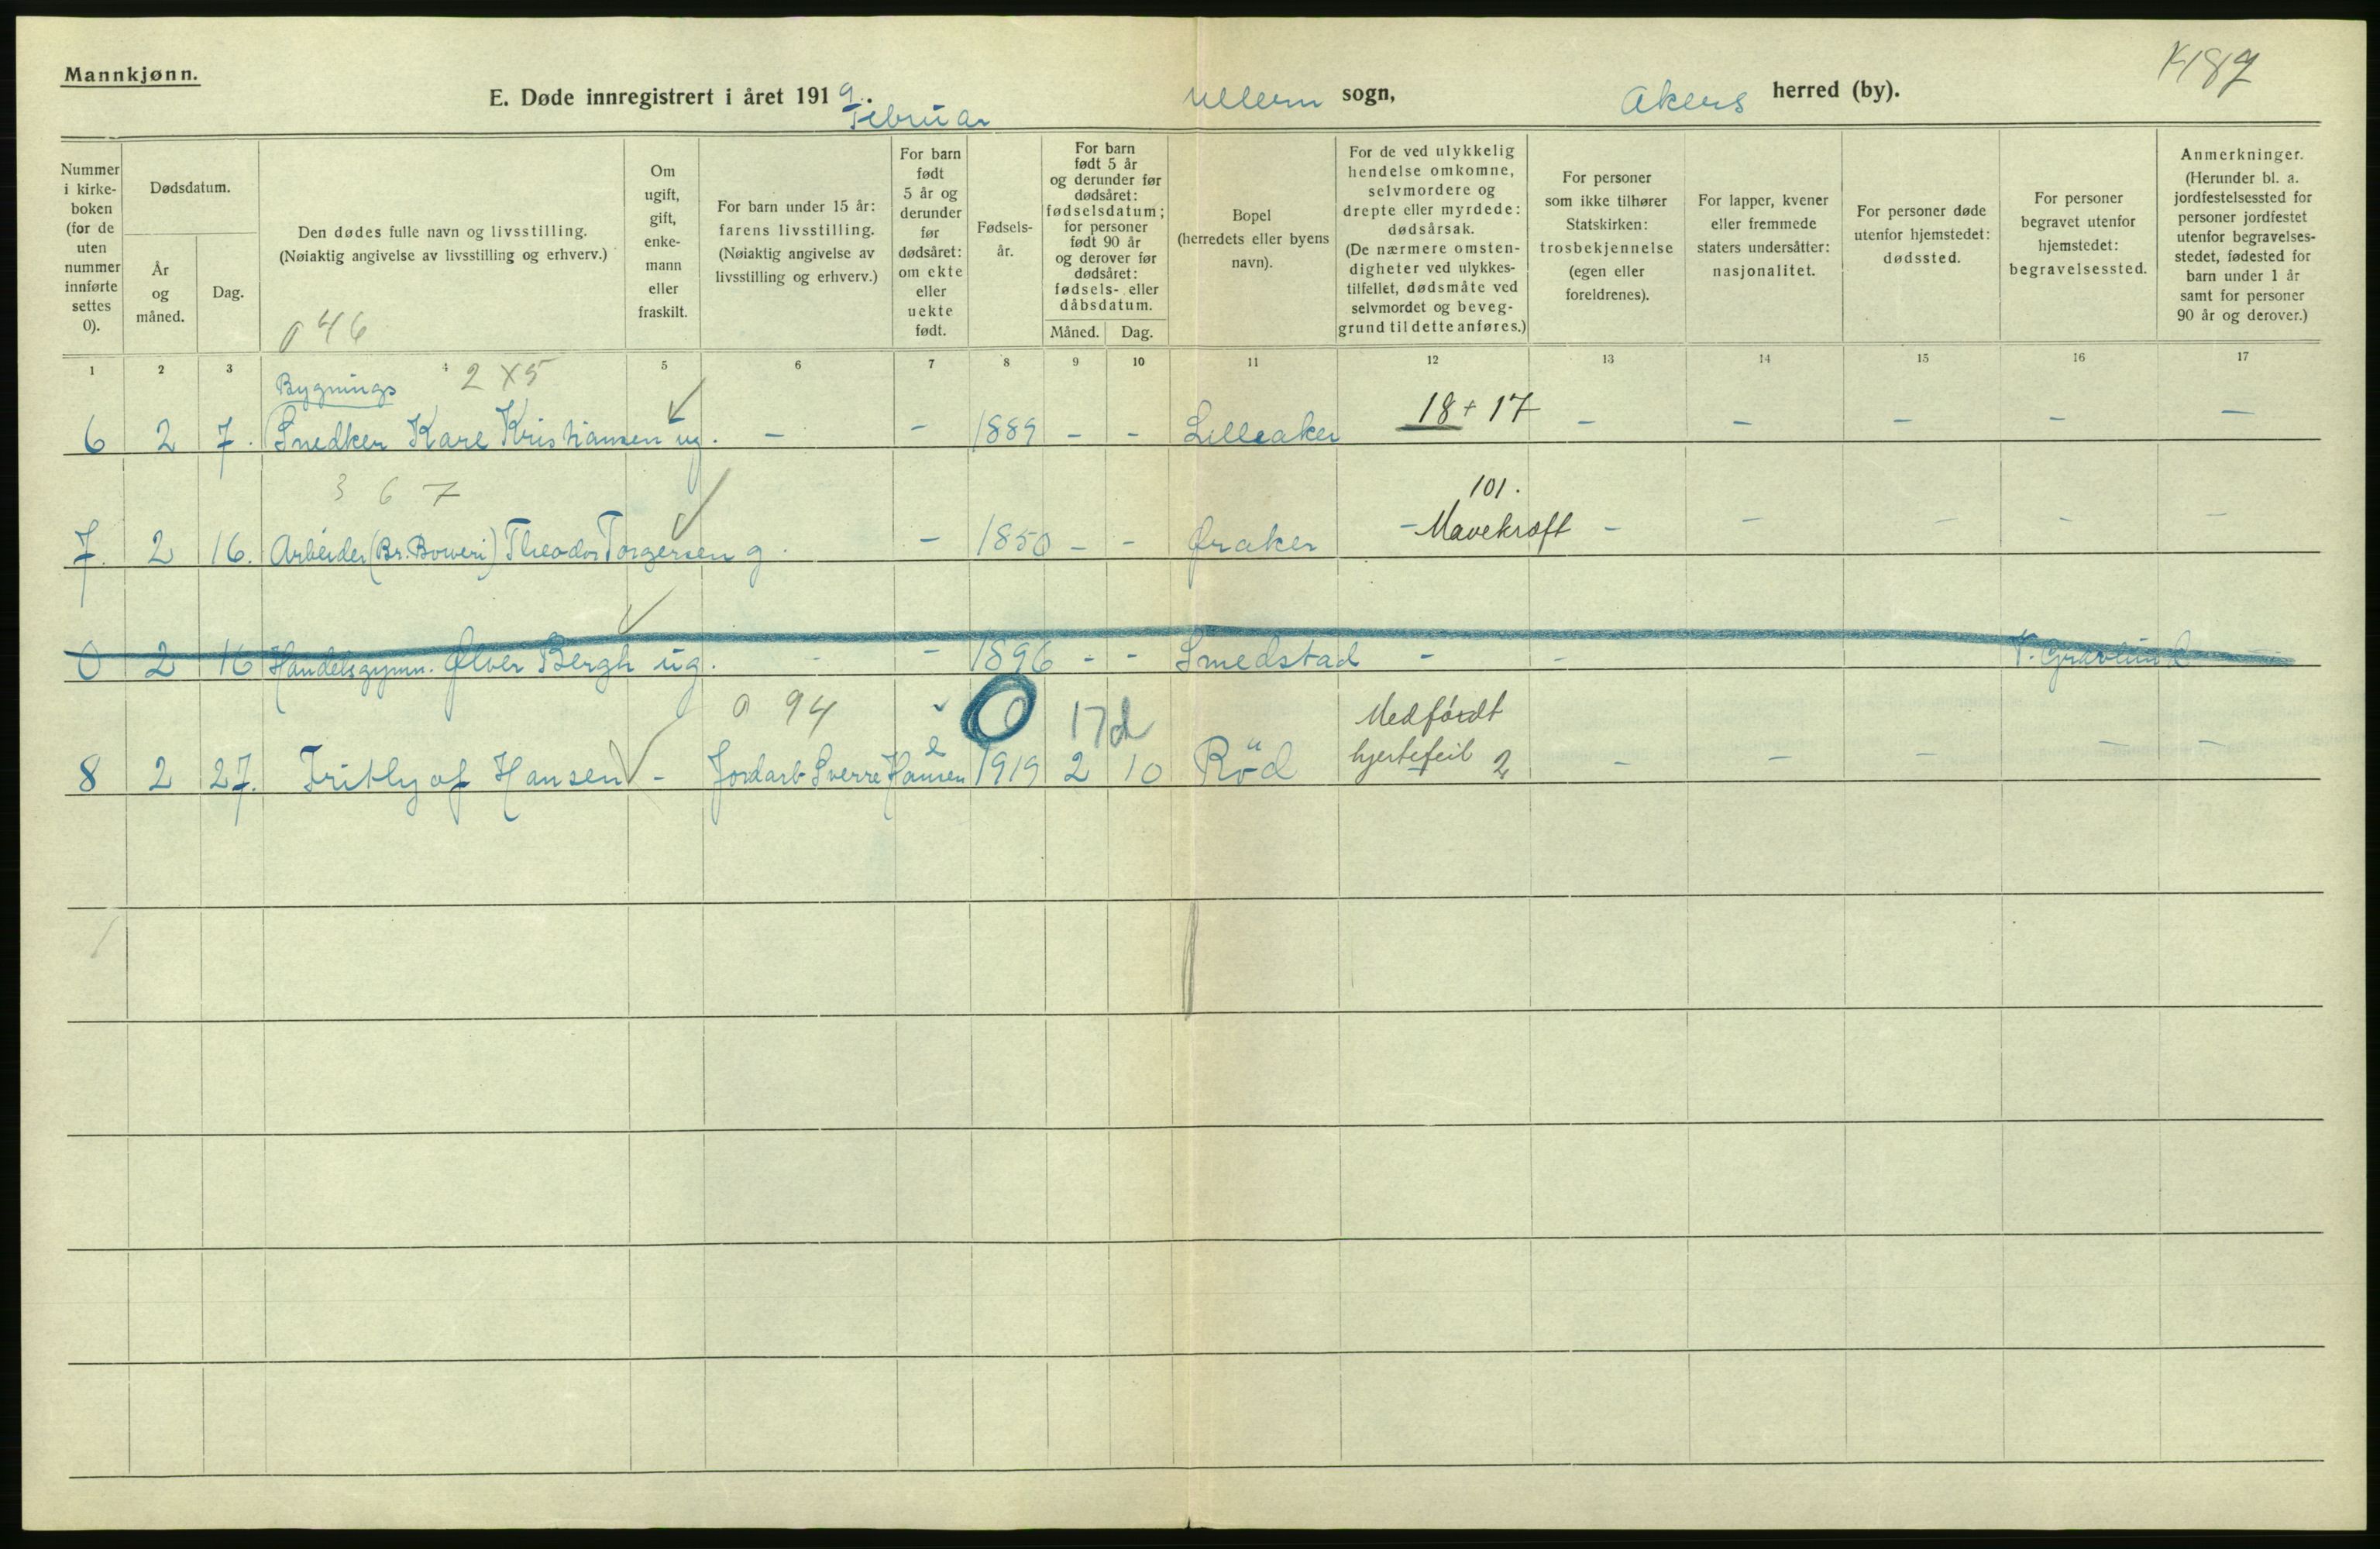 Mannkjønn.
E. Døde innregistrert i året 1919.
Februar
Ullern sogn,
Akers herred (by).
Nummer i kirke- boken (for de uten nummer innførte settes 0).
Dødsdatum.
År og måned.
Dag.
Den dødes fulle navn og livsstilling.
(Nøiaktig angivelse av livsstilling og erhverv.)
046
Om ugift, gift, enke- mann eller fraskilt.
For barn under 15 år: farens livsstilling. (Nøiaktig angivelse av livsstilling og erhverv.)
For barn født 5 år og derunder før dødsåret: om ekte eller uekte født.
Fødsels- år.
For barn født 5 år og derunder før dødsåret: fødselsdatum; for personer født 90 år og derover før dødsåret: fødsels- eller dåbsdatum.
Måned. Dag.
Bopel (herredets eller byens navn).
For de ved ulykkelig hendelse omkomne, selvmordere og drepte eller myrdede: dødsårsak. (De nærmere omsten- digheter ved ulykkes- tilfellet, dødsmåte ved selvmordet og beveg- grund til dette anføres.)
For personer som ikke tilhører Statskirken: trosbekjennelse (egen eller foreldrenes).
For lapper, kvener eller fremmede staters undersåtter: nasjonalitet.
For personer døde utenfor hjemstedet: dødssted.
For personer begravet utenfor hjemstedet: begravelsessted.
Anmerkninger. (Herunder bl. a. jordfestelsessted for personer jordfestet utenfor begravelses- stedet, fødested for barn under 1 år samt for personer 90 år og derover.)
1 2 3 4 5 6 7 8 9 10 11 12 13 14 15 16 17
Bygnings 2 X 5
6 2 7. Snedker Kare Kristiansen ug. - - 1889 - - Lilleaker 18 + 17 - - - - -
3 6 7
101.
7. 2 16. Arbeider (Br. Boweri) Theodor Torgersen g. - 1850 - - Øraker - Mavekræft - - - - -
0 2 16 Handelsgymn. Ølver Bergh ug. - - 1896 - - Smedstad - - V. Gravlund
0 94 0 17d Medfördt
8 2 27. Frithjof Hansen - Jordarb Sverre Hansen e 1919 2 10 Röd hjertefeil 2 - - - - -